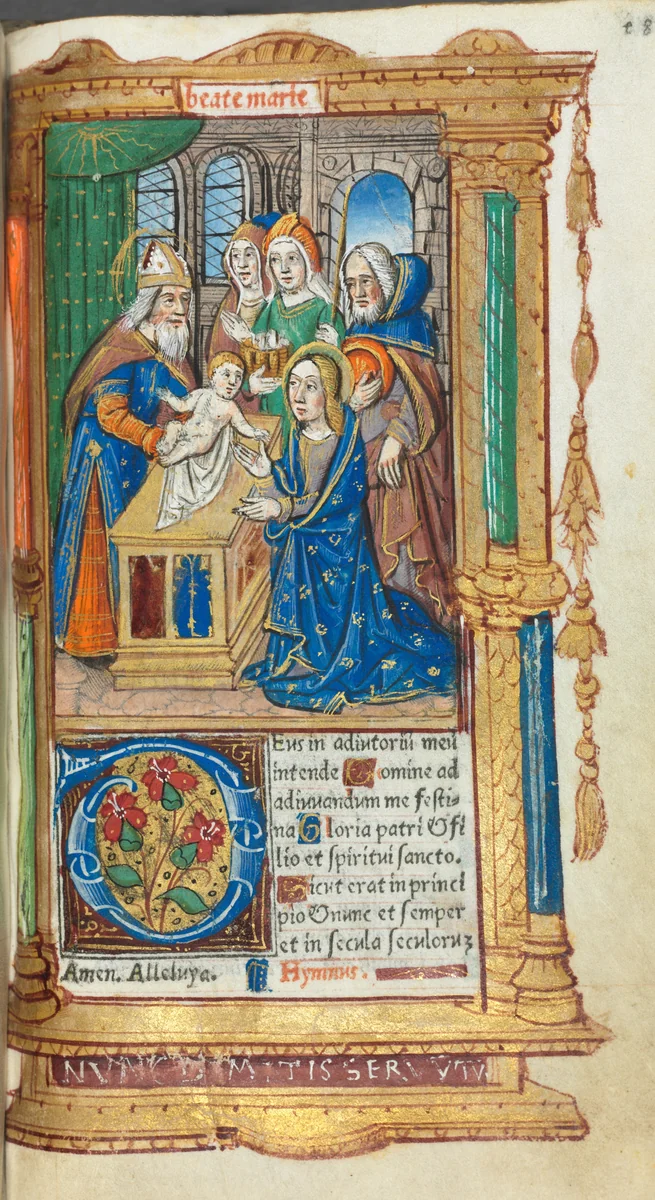 beate marie
Eus in adiutoriū meū
intende Domine ad
adiuuandum me festi-
na Gloria patri & fi
lio et spiritui sancto.
Sicut erat in princi
pio & nunc et semper
et in secula seculoruz
Amen. Alleluya. Hymnus.
NVNC DIMITIS SERVV TVV